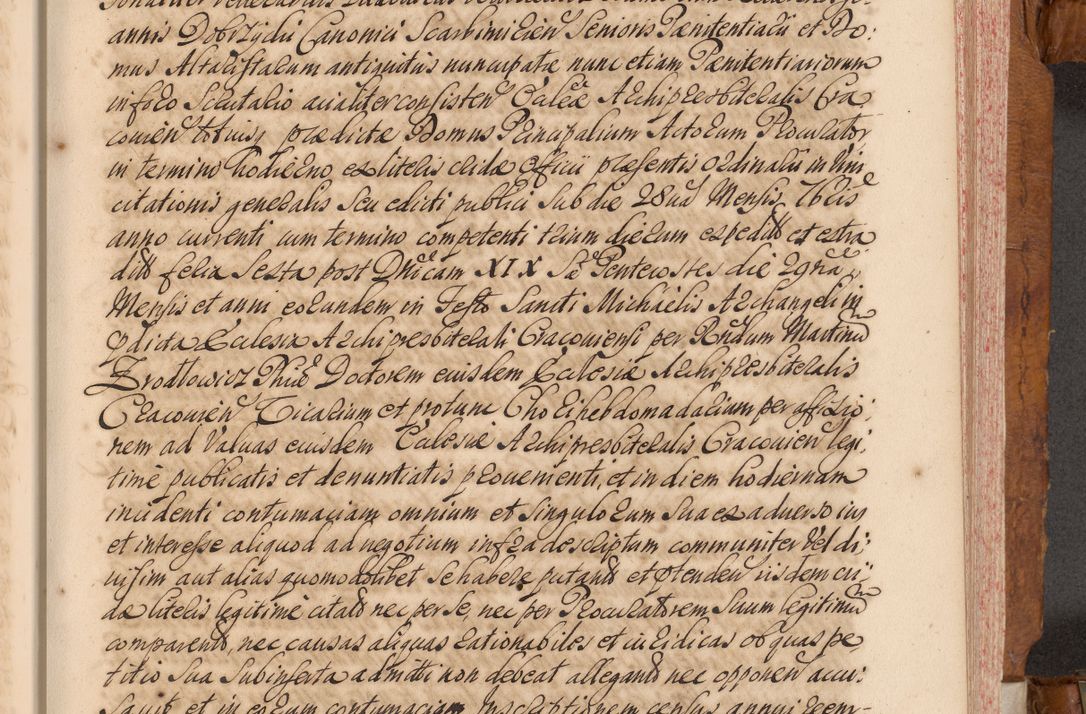 annis Dobrzycki Canonici Scarbimirien Senioris Pænitentiarii et Do:
mus Altaristarum antiquitus nuncupatæ nunc etiam Pænitentiariorum
in foro Sæculario aialiter consisten Eccleæ Archipresbiteralis Cra
covien totius prædictæ Domus Principalium Actorum Procurator
in termino hodierno ex literis cridæ Officii præsentis Ordinarii in Vim
citationis generalis Seu edicti publici Sub die 28va Mensis 7bris
anno currenti cum termino competenti trium dierum expedit et extra
dit feria Sexta post Dnicam XIX Ste Pentecostes die 29na
Mensis et anni eorundem in Festo Sancti Michaelis Archangeli in
pdicta Ecclesia Archipresbiterali Cracoviensi per Rndum Martinu
Zrodlowicz Phiæ Doctorem eiusdem Ecclesiæ Archipresbiteralis
Cracovien Vicarium et protunc Chori hebdomadarium per affixio
nem ad Valuas eiusdem Ecclesiæ Archipresbiteralis Cracovien legi:
time publicatis et denuntiatis provenienti, et in diem hodiernam
incidenti contumaciam omnium et Singulorum Sua ex adverso ius
et interesse aliquod ad negotium infra descriptum communiter Vel di:
visim aut alias quomodolibet Se habere putand et ptenden iisdem cri
dæ literis legitime citatd nec per Se, nec per Procuratorem Suum legitimu
comparentd, nec causas aliquas rationabiles et iuridicas ob quas pe
titio Sua Subinserta admitti non debeat allegand nec opponen accu:
Savit et in eorum contumaciam Inscriptionem census annui reem-